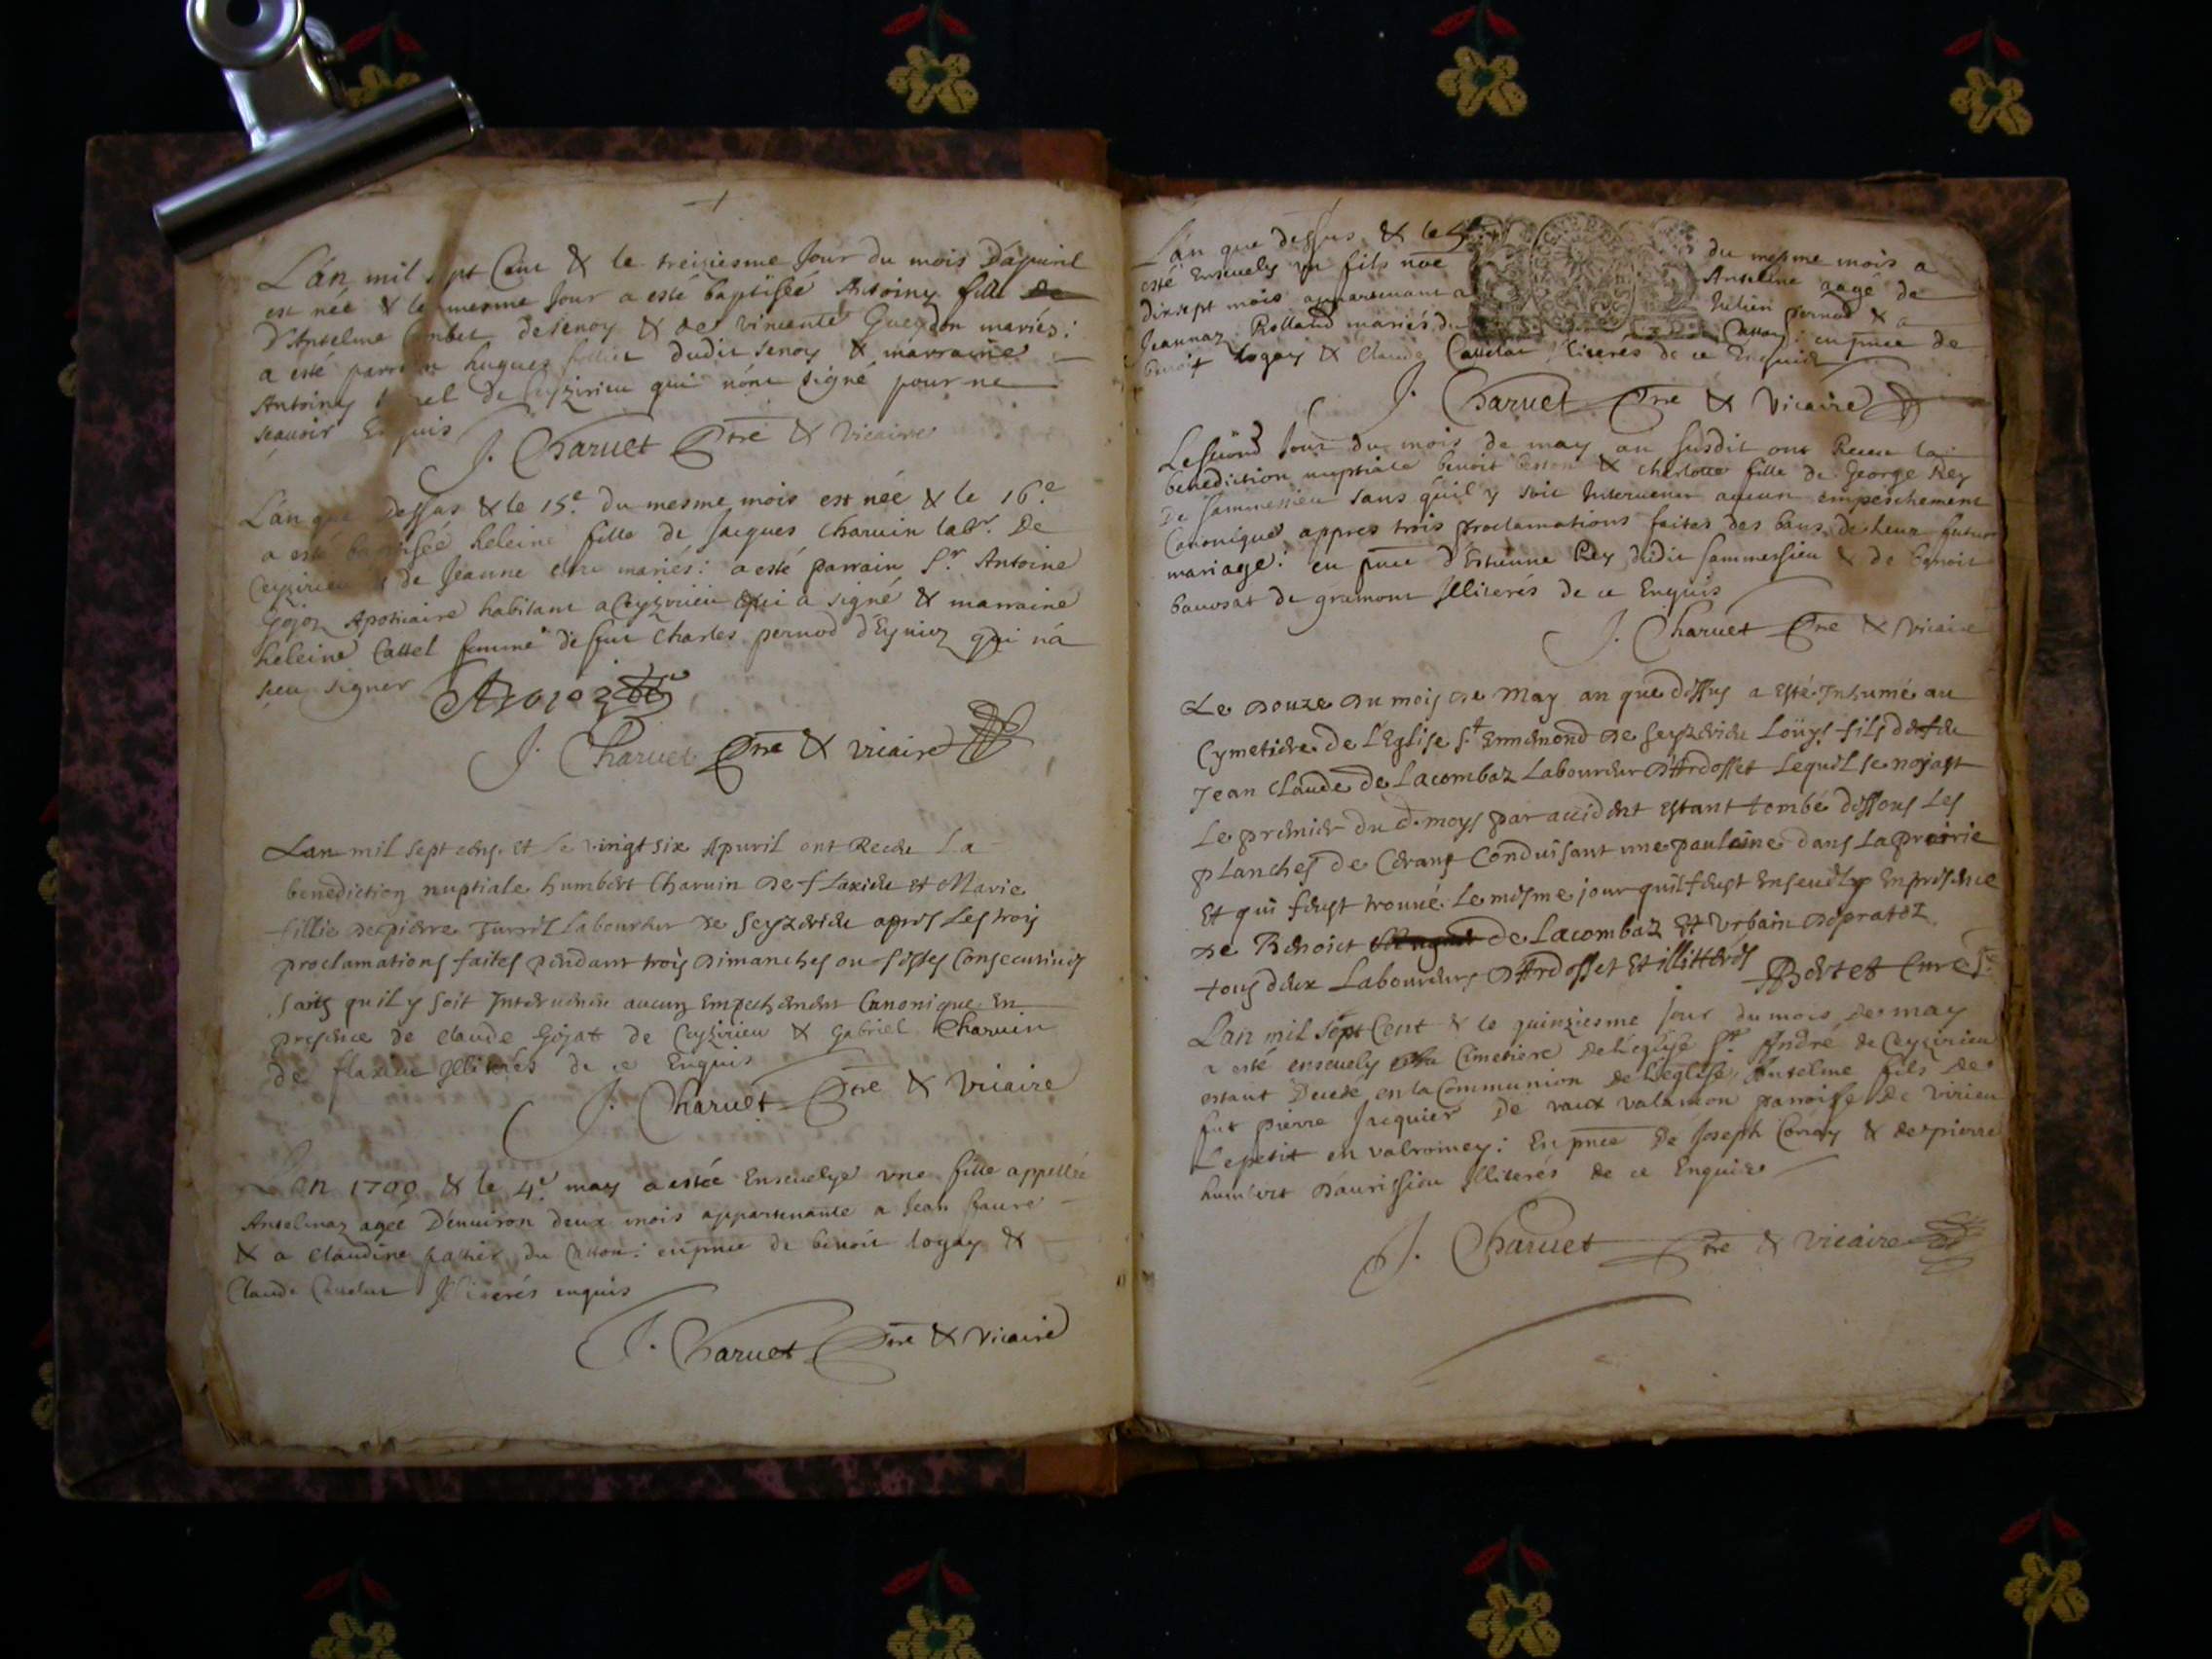 L'án mil sept Cent & le treiziesme Jour du mois D'apuril
est née & le mesme Jour a esté baptisée Antoiny fille de
D'Anselme Combet de senoy & de vincente Gueydon mariés:
a esté parrain hugues follict dudit senoy & marraine
Antoiny de Ceyzirieu qui nónt signé pour ne
scauoir Enquis
J. Charuet Ptre & Vicaire
L'an que Dessus & le 15.e du mesme mois est née & le 16.e
a esté baptisée heleine fille de Jacques Charuin labr. De
Ceyzirieu & de Jeanne mariés: a esté parrain Sr. Antoine
Gojoz Apoticaire habitant a Ceyzirieu qui a signé & marraine
heleine Cattel femme de feu Charles pernod d'Eyrieu qui n'á
sceu signer AGojoz
J. Charuet Ptre & vicaire
Lan mil sept cens et le vingt six Apuril ont Receu La
benediction nuptiale humbert Charuin De flaxieu et Marie
fillie de pierre Laboureur de Seyzerieu apres Les trois
proclamations faites pendant trois Dimanches ou festes Consecutiues
sans quil y soit Interuenu aucun Empechement Canonique En
presence de Claude Gojat de Ceyzirieu & Gabriel Charuin
de flaxieu Illiterés de ce Enquis
J. Charuet Ptre & Vicaire
L'an 1700 & le 4.e may a estée Enseuelye vne fille appellée
Anselmaz agée D'enuiron deux mois appartenante a Jean faure
& a Claudine pattier du Catton: en pnce de benoit logoy &
Claude Cattelat Illiterés enquis
J. Charuet Ptre & Vicaire
L'an que dessus & le 5 du mesme mois a
esté Enseuely vn fils nóe Anselme aagé de
dixsept mois appartenant a Julien pernod & a
Jeannaz Rolland mariés du Catton: en pnce de
benoit logoy & Claude Cattelat Illiterés de ce Enquis
J. Charuet Ptre & Vicaire
Le second Jour du mois de may an susdit ont Receu la
benediction nuptiale benoit & Charlotte fille de George Rey
De sammessieu sans quil y soit Interuenu aucun empeschement
Canonique appres trois proclamations faites des bans de heur futur
mariage: en pnce d'Estienne Rey dudit sammessieu & de benoit
bauosat de gramont Illiterés de ce Enquis
J. Charuet Ptre & Vicaire
Le Douze Du mois De May an que dessus a Esté Inhumé au
Cymetiere de L'Eglise St. Ennemond De Seyzerieu Loüys fils de feu
Jean Claude de Lacombaz Laboureur D'Ardosset Lequel se noyast
Le premier du d. moys par accident Estant tombé dessous Les
planches de Cerans Conduisant une pauleine dans La prairie
Et qui feust trouué Le mesme jour quil feust Enseuely En presence
De Benoict de Lacombaz Et Urbain Depratez
tous deux Laboureurs D'Ardosset Et illitterés Bertet Curé
L'an mil sept Cent & le quinziesme Jour du mois de may
a esté enseuely au Cimetiere de l'eglise St. André de Ceyzirieu
estant Decede en la Communion de l'eglise, Anselme fils de
fut pierre Jacquier De vaux valamon parroisse de Virieu
Le petit en valromey: En pnce De Joseph & de pierre
humbert D'aurissieu Illiterés de ce Enquis
J. Charuet Ptre & vicaire